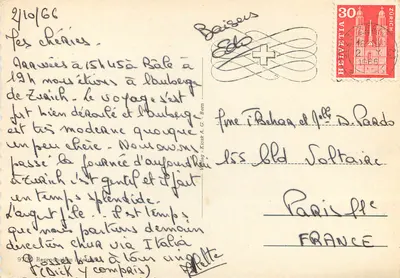 2/10/66
Les chéries.
Arrivées à 15h45 à Bâle à
19h nous étions à l'auberge
de Zurich. Le voyage s'est
fort bien déroulé et l'auberge
est très moderne quoique
un peu chère. Nous avons
passé la journée d'aujourd'hui
à Zurich c'est gentil et il fait
un temps splendide.
L'argent file. il est temps
que nous partions demain
direction Chur via Italia
Grosses bises à tous
(Dick y compris)
Baisers
30
HELVETIA
ZÜRICH
et Melle D. Pardo
155 Bld Voltaire
PARIS 11e
FRANCE